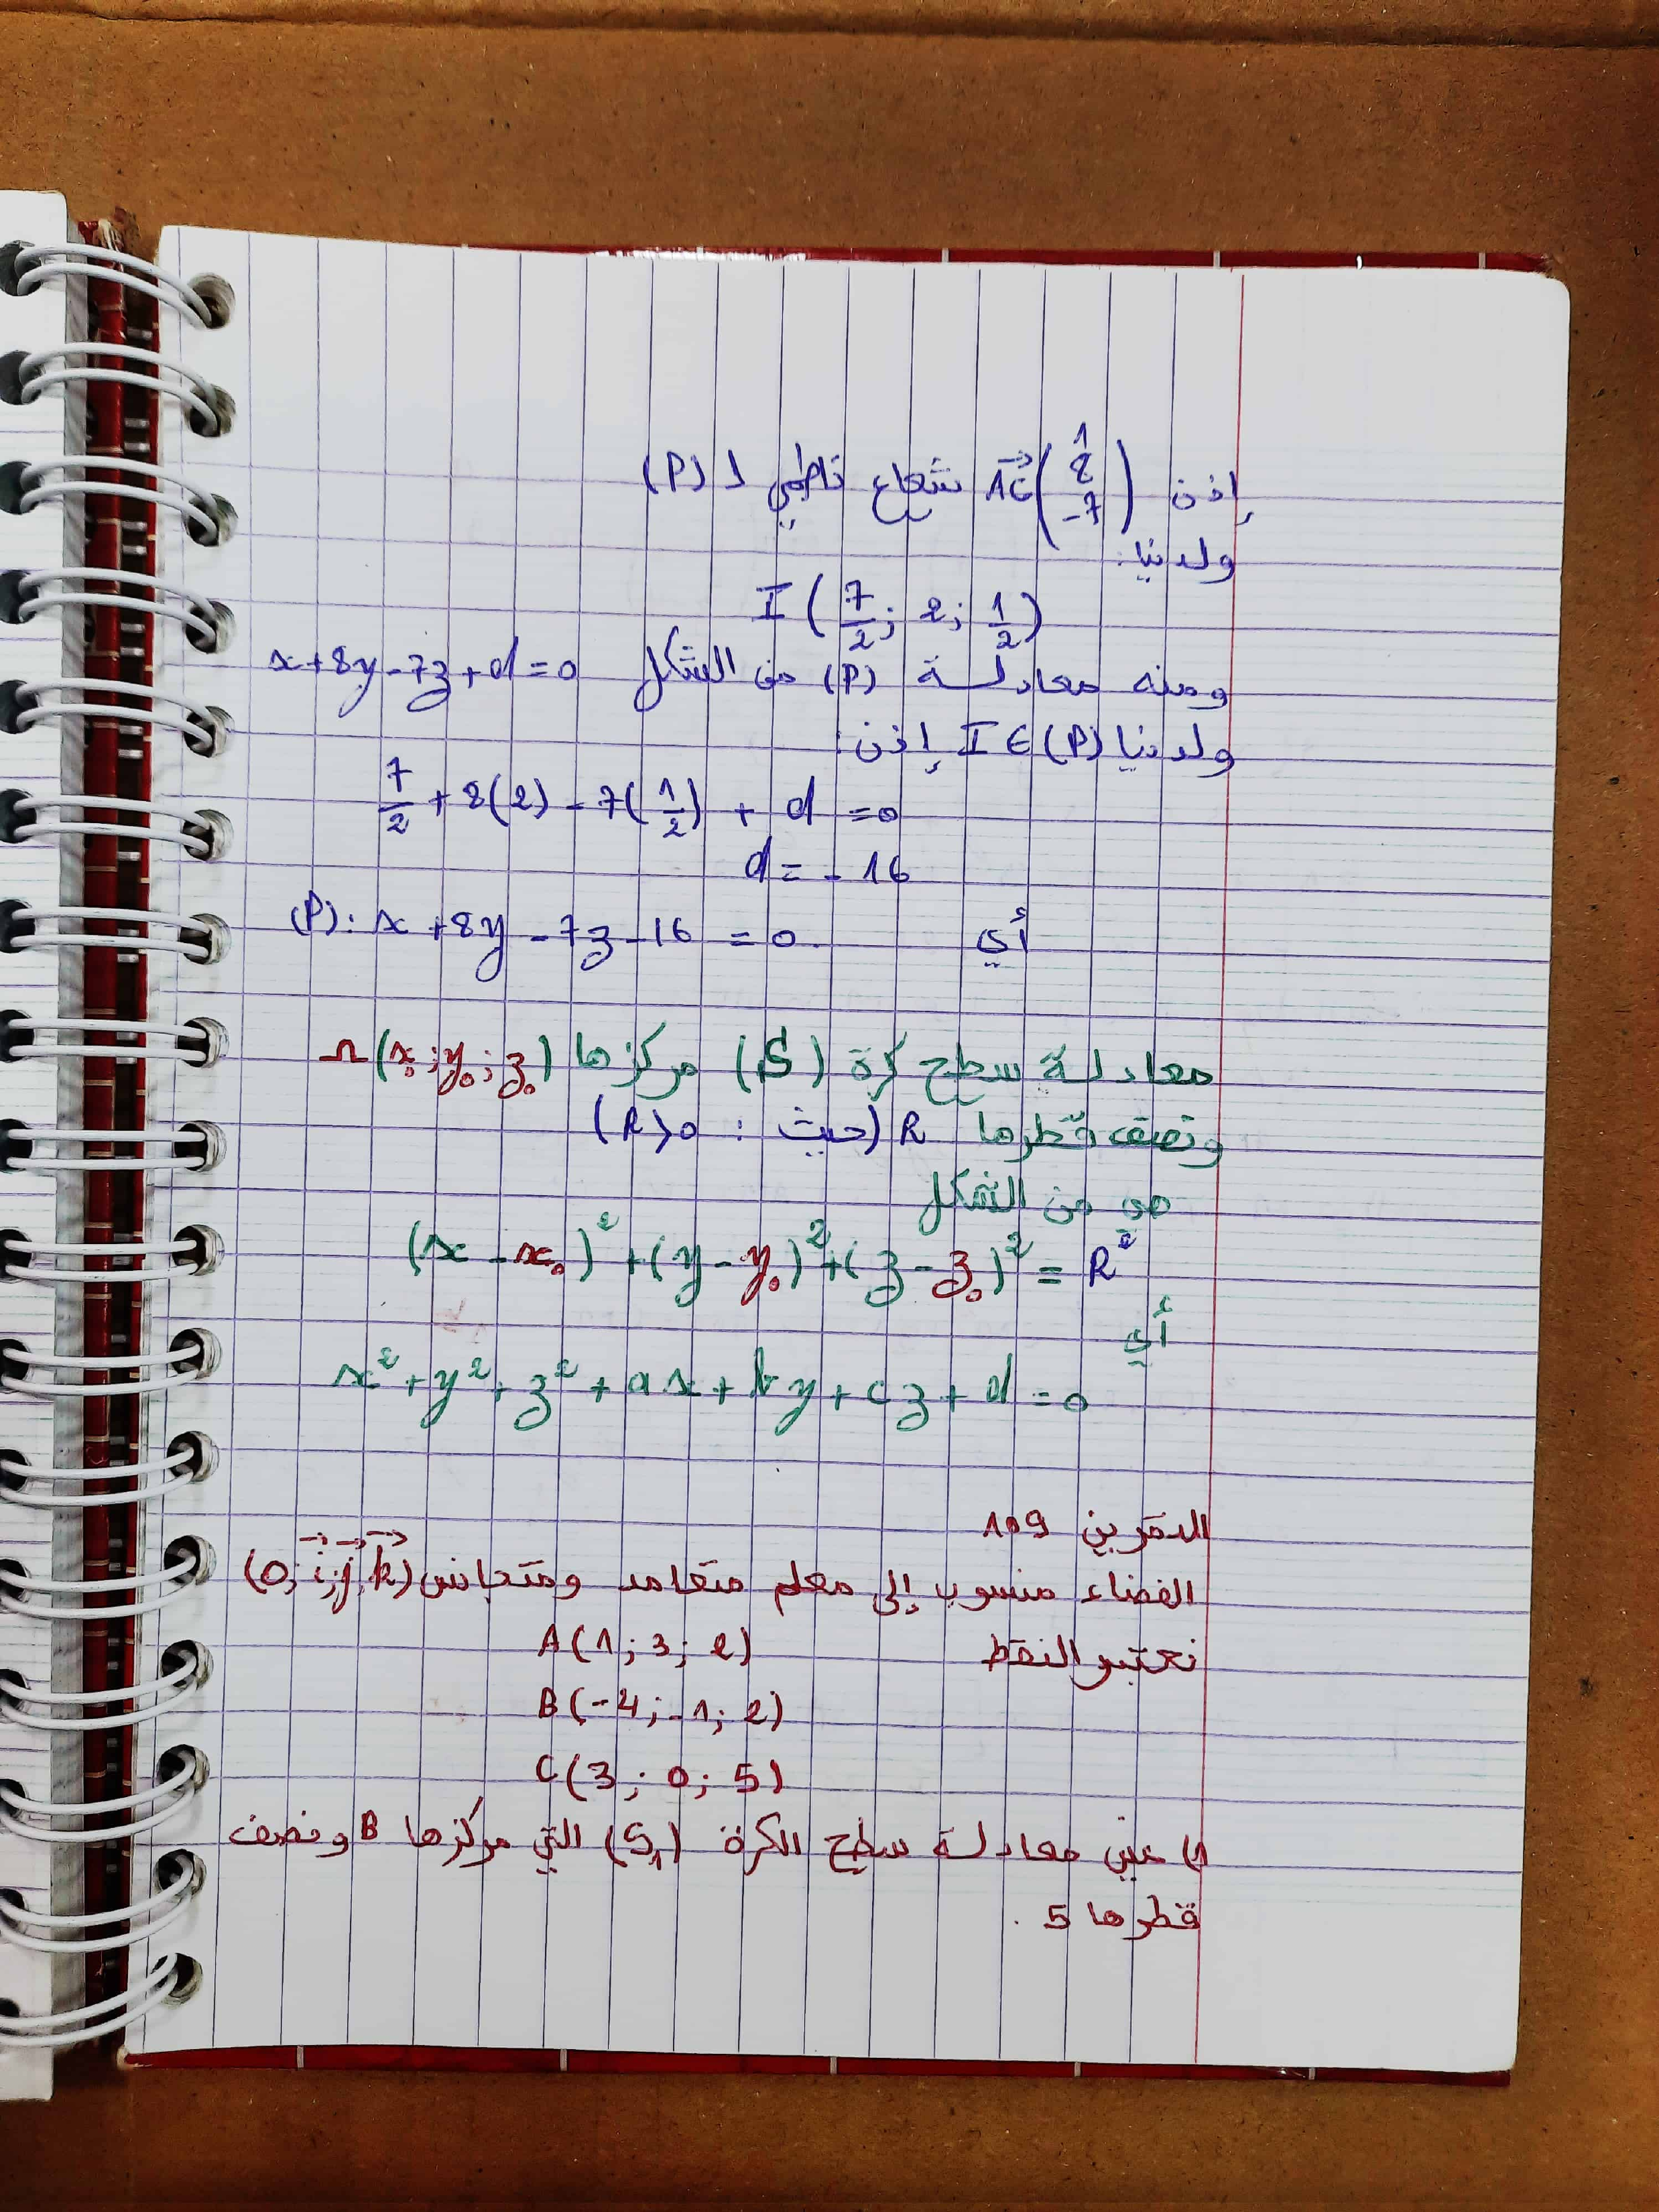 إذن AC(1 8 -7) شعاع ناظمي لـ (P)
ولدينا:
I(7/2; 2; 1/2)
ومنه معادلة (P) من الشكل x+8y-7z+d=0
ولدينا I∈(P) إذن:
7/2 + 8(2) - 7(1/2) + d = 0
d = -16
أي (P): x+8y-7z-16=0
معادلة سطح كرة (S) مركزها Ω(x₀;y₀;z₀)
ونصف قطرها R (حيث: R>0)
هو من الشكل
(x-x₀)²+(y-y₀)²+(z-z₀)²=R²
أي
x²+y²+z²+ax+by+cz+d=0
التمرين 109
الفضاء منسوب إلى معلم متعامد ومتجانس (O; i; j; k)
نعتبر النقط A(1;3;2)
B(-4;-1;2)
C(3;0;5)
1) عين معادلة سطح الكرة (S₁) التي مركزها B ونصف
قطرها 5.